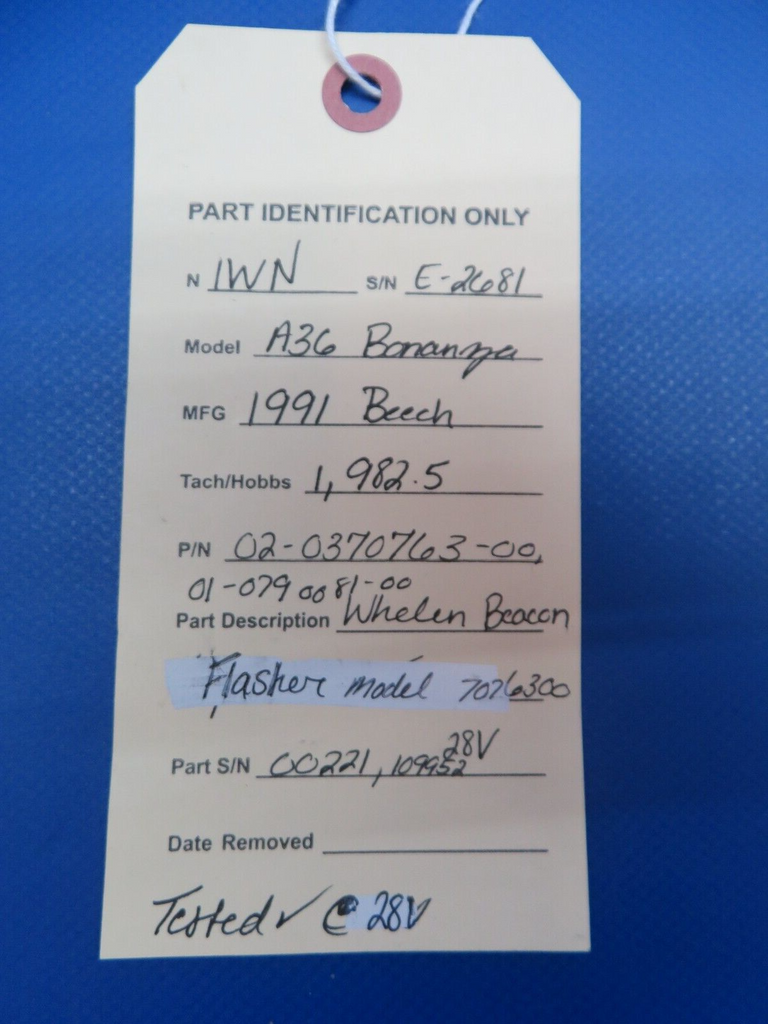 PART IDENTIFICATION ONLY
N 1WN S/N E-2681
Model A36 Bonanza
MFG 1991 Beech
Tach/Hobbs 1,982.5
P/N 02-0370763-00,
01-0790081-00
Part Description Whelen Beacon
Flasher model 7076300
28V
Part S/N 00221, 109952
Date Removed
Tested ✓ @ 28V